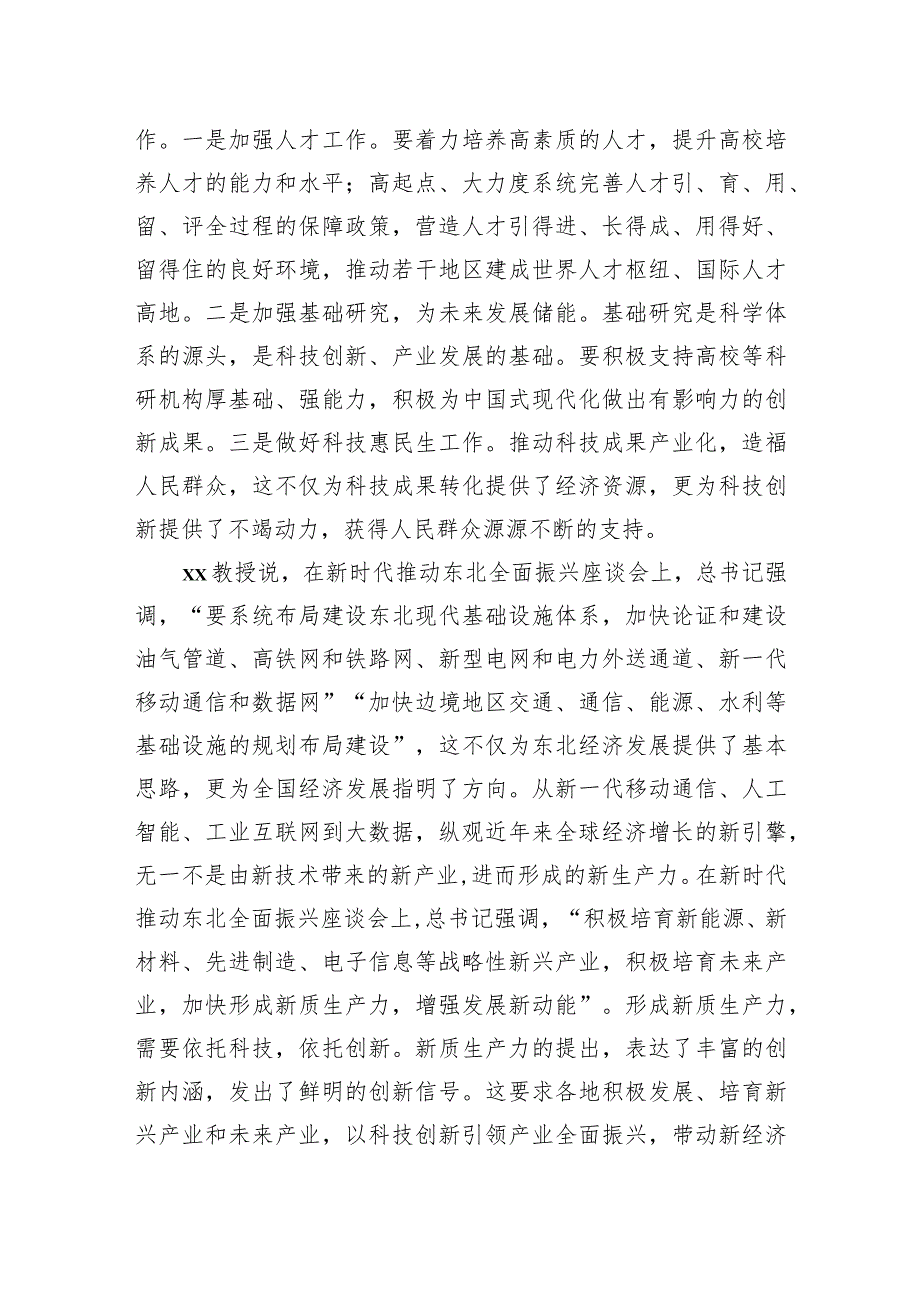 作。一是加强人才工作。要着力培养高素质的人才，提升高校培
养人才的能力和水平；高起点、大力度系统完善人才引、育、用、
留、评全过程的保障政策，营造人才引得进、长得成、用得好、
留得住的良好环境，推动若干地区建成世界人才枢纽、国际人才
高地。二是加强基础研究，为未来发展储能。基础研究是科学体
系的源头，是科技创新、产业发展的基础。要积极支持高校等科
研机构厚基础、强能力，积极为中国式现代化做出有影响力的创
新成果。三是做好科技惠民生工作。推动科技成果产业化，造福
人民群众，这不仅为科技成果转化提供了经济资源，更为科技创
新提供了不竭动力，获得人民群众源源不断的支持。
xx教授说，在新时代推动东北全面振兴座谈会上，总书记强
调，“要系统布局建设东北现代基础设施体系，加快论证和建设
油气管道、高铁网和铁路网、新型电网和电力外送通道、新一代
移动通信和数据网”“加快边境地区交通、通信、能源、水利等
基础设施的规划布局建设”，这不仅为东北经济发展提供了基本
思路，更为全国经济发展指明了方向。从新一代移动通信、人工
智能、工业互联网到大数据，纵观近年来全球经济增长的新引擎，
无一不是由新技术带来的新产业,进而形成的新生产力。在新时代
推动东北全面振兴座谈会上,总书记强调，“积极培育新能源、新
材料、先进制造、电子信息等战略性新兴产业，积极培育未来产
业，加快形成新质生产力，增强发展新动能”。形成新质生产力，
需要依托科技，依托创新。新质生产力的提出，表达了丰富的创
新内涵，发出了鲜明的创新信号。这要求各地积极发展、培育新
兴产业和未来产业，以科技创新引领产业全面振兴，带动新经济